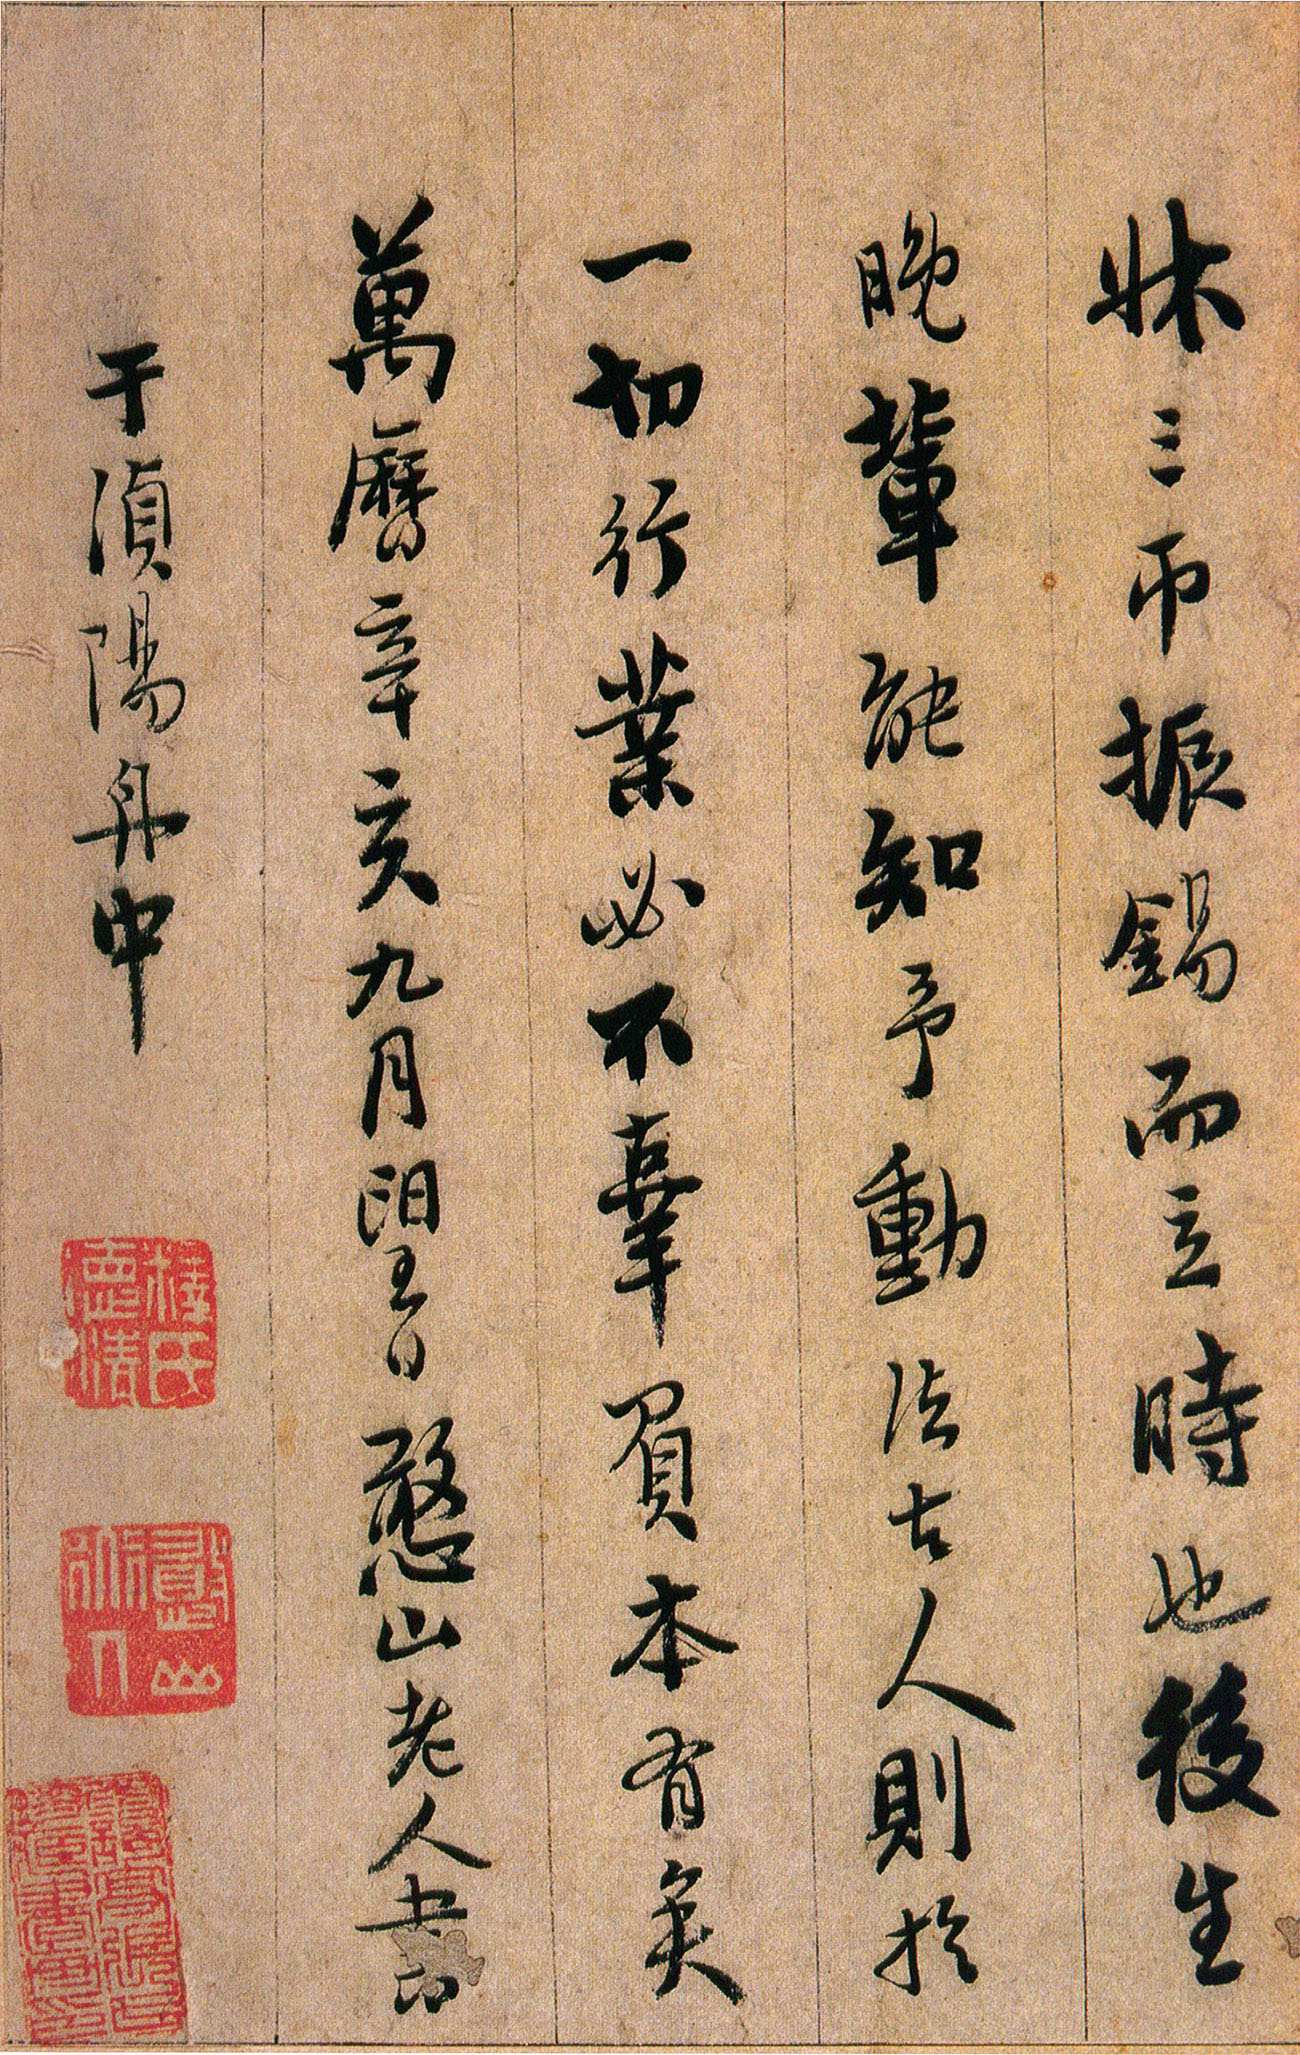 牀三帀振錫而立時也後生
晚輩能知予動法古人則於
一切行業必不辜負本有矣
萬曆辛亥九月望日憨山老人書
于湞陽舟中
德清
憨山